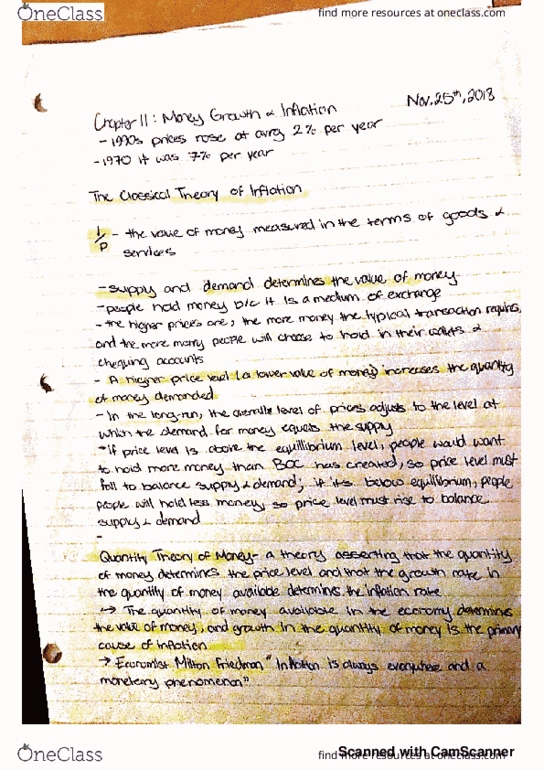 OneClass
find more resources at oneclass.com
Nov. 25th, 2013
Chapter 11: Money Growth & Inflation
- 1990s prices rose at avrg 2% per year
- 1970 it was 7% per year
The Classical Theory of Inflation
1/P - the value of money measured in the terms of goods &
services
- supply and demand determines the value of money
- people hold money b/c it is a medium of exchange
- the higher prices are, the more money the typical transaction requires,
and the more money people will choose to hold in their wallets &
chequing accounts
- A higher price level (a lower value of money) increases the quantity
of money demanded
- In the long-run, the overall level of prices adjusts to the level at
which the demand for money equals the supply
- if price level is above the equillibrium level, people would want
to hold more money than BOC has created, so price level must
fall to balance supply & demand; if its below equilibrium, people
people will hold less money, so price level must rise to balance
supply & demand
-
Quantity Theory of Money - a theory asserting that the quantity
of money determines the price level and that the growth rate in
the quantity of money available determines the inflation rate
↪ The quantity of money available in the economy determines
the value of money, and growth in the quantity of money is the primary
cause of inflation
→ Economist Milton Friedman "Inflation is always everywhere and a
monetary phenomenon"
OneClass
find more resources at oneclass.com
Scanned with CamScanner